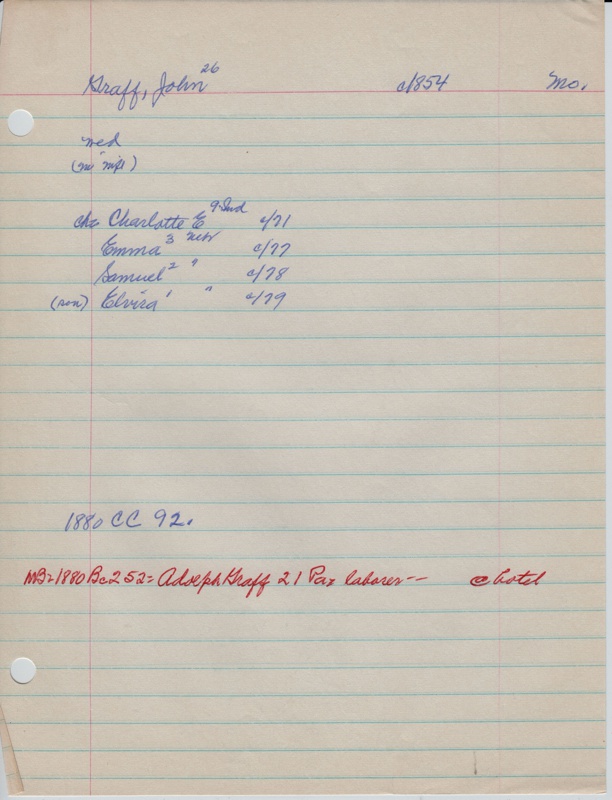 Graff, John 26 c/1854 Mo.
med
(no wife)
ch= Charlotte E 9 Ind c/71
Emma 3 Nebr c/77
Samuel 2 " c/78
(son) Elvira 1 " c/79
1880 CC 92.
MB=1880 Bc252= Adolph Graff 21 Pa= laborer-- @ hotel